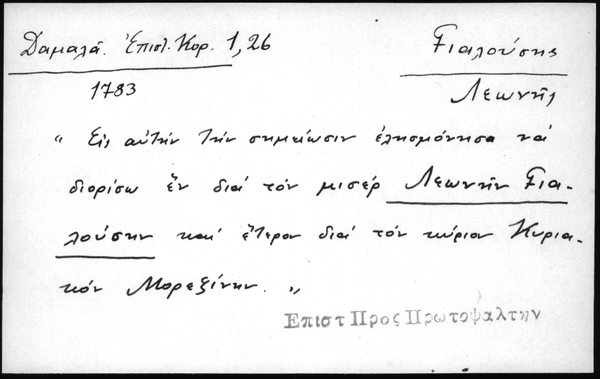 Δαμαλᾶ. Ἐπιστ. Κορ. 1,26
Γιαλούσης
1783
Λεωνῆς
“ Εἰς αὐτὴν τὴν σημείωσιν ἐλησμόνησα νὰ
διορίσω ἓν διὰ τὸν μισὲρ Λεωνῆν Για-
λούσην καὶ ἕτερον διὰ τὸν κύριον Κυρια-
κόν Μορεξίνην. ”
Επιστ Προς Πρωτοψαλτην